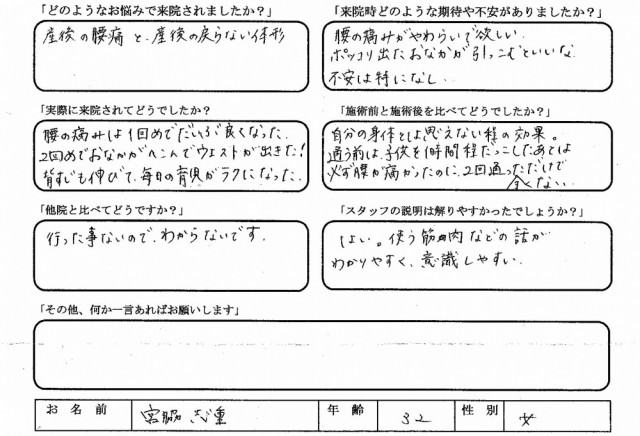 「どのようなお悩みで来院されましたか？」
産後の腰痛と、産後の戻らない体形
「来院時どのような期待や不安がありましたか？」
腰の痛みがやわらいで欲しい。
ポッコリ出たおなかが引っこむといいな
不安は特になし
「実際に来院されてどうでしたか？
腰の痛みは1回めでだいぶ良くなった。
2回めでおなかがへこんでウエストが出きた！
背すじも伸びて、毎日の育児がラクになった。
「施術前と施術後を比べてどうでしたか？」
自分の身体とは思えない程の効果。
通う前は、子供を1時間程だっこしたあとは
必ず腰が痛かったのに、2回通っただけで
全くない
「他院と比べてどうですか？」
行った事ないので、わからないです。
「スタッフの説明は解りやすかったでしょうか？」
はい。使う筋肉などの話が
わかりやすく、意識しやすい。
「その他、何か一言あればお願いします」
お名前 宮脇 志重 年齢 32 性別 女